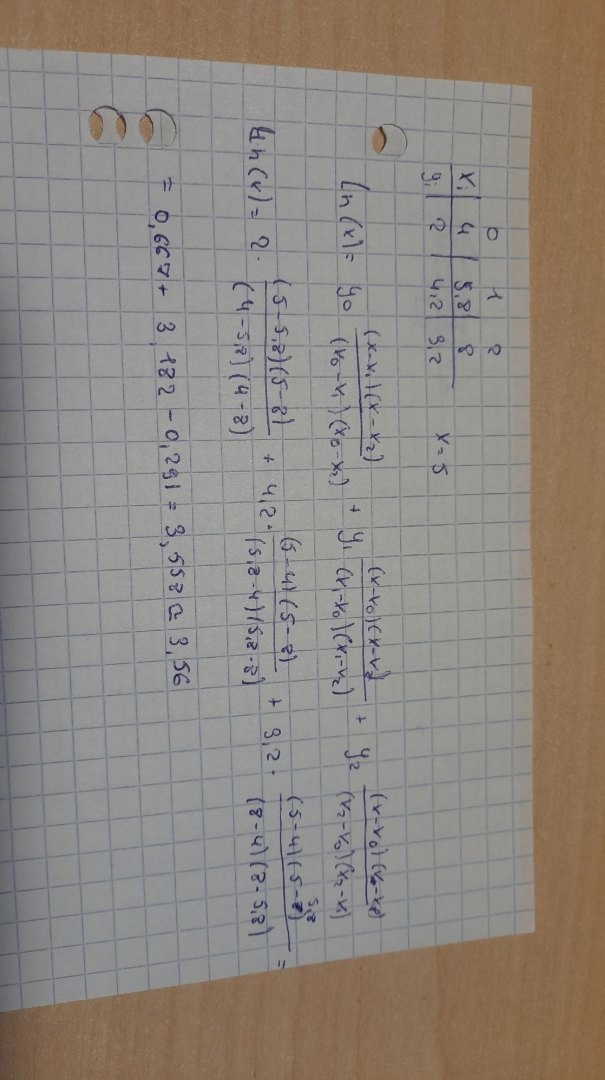 0 1 2
xi 4 5,8 8
yi 2 4,2 3,2 x=5
Ln(x)= y0 (x-x1)(x-x2)/(x0-x1)(x0-x2) + y1 (x-x0)(x-x2)/(x1-x0)(x1-x2) + y2 (x-x0)(x-x1)/(x2-x0)(x2-x1)
Ln(x)= 2· (5-5,8)(5-8)/(4-5,8)(4-8) + 4,2· (5-4)(5-8)/(5,8-4)(5,8-8) + 3,2· (5-4)(5-5,8)/(8-4)(8-5,8) =
= 0,667+ 3,182 - 0,291 = 3,558 ≈ 3,56